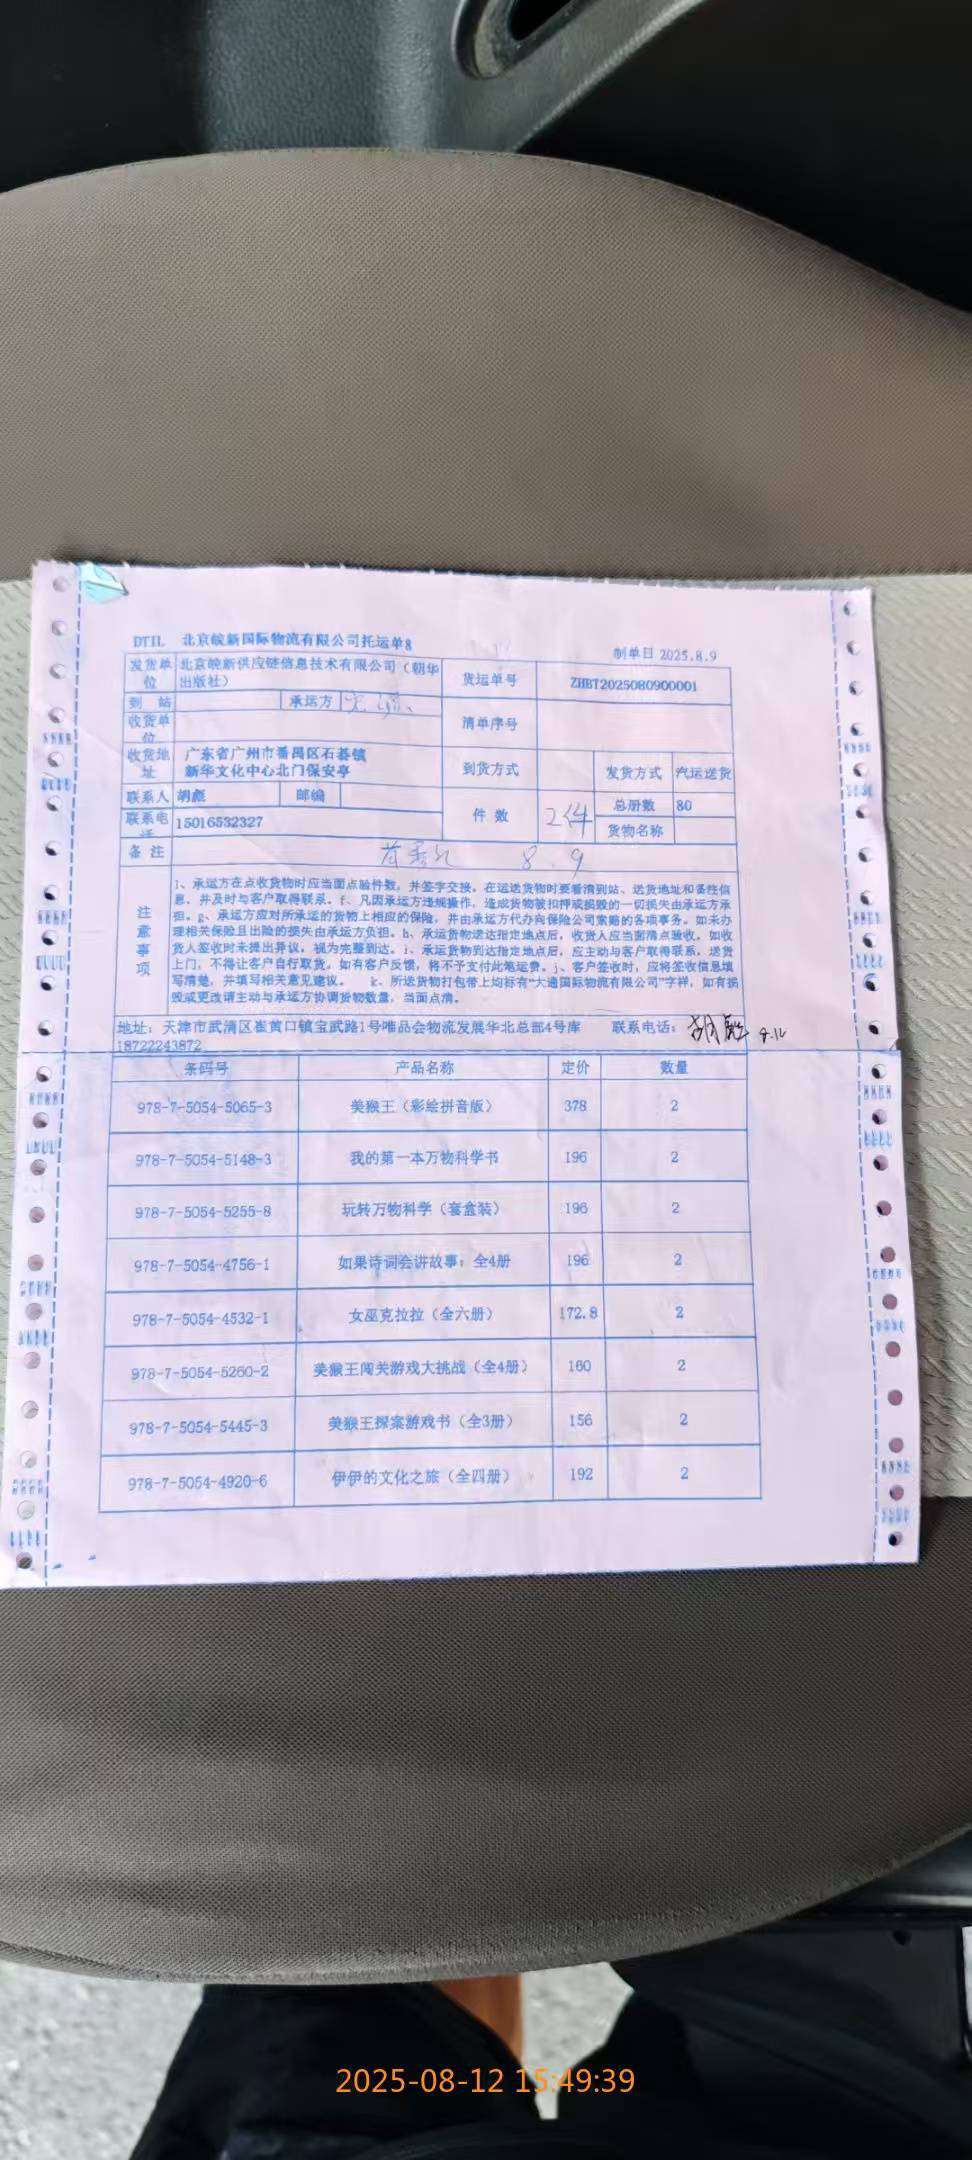 DTIL 北京皖新国际物流有限公司托运单8
制单日 2025.8.9
发货单位 北京皖新供应链信息技术有限公司（朝华出版社） 货运单号 ZHBT2025080900001
到 站 承运方
收货单位 清单序号
收货地址 广东省广州市番禺区石碁镇
新华文化中心北门保安亭
到货方式 发货方式 汽运送货
联系人 胡彪 邮编
件 数 2件 总册数 80
联系电话 15016532327
货物名称
备 注 8.9
注意事项
1、承运方在点收货物时应当面点验件数，并签字交接。在运送货物时要看清到站、送货地址和备注信
息，并及时与客户取得联系。f、凡因承运方违规操作，造成货物被扣押或损毁的一切损失由承运方承
担。g、承运方应对所承运的货物上相应的保险，并由承运方代办向保险公司索赔的各项事务。如未办
理相关保险且出险的损失由承运方负担。h、承运货物送达指定地点后，收货人应当面清点验收。如收
货人签收时未提出异议，视为完整到达。i、承运货物到达指定地点后，应主动与客户取得联系。送货
上门，不得让客户自行取货，如有客户反馈，将不予支付此笔运费。j、客户签收时，应将签收信息填
写清楚，并填写相关意见建议。 k、所送货物打包带上均标有“大通国际物流有限公司”字样，如有损
毁或更改请主动与承运方协调货物数量，当面点清。
地址：天津市武清区崔黄口镇宝武路1号唯品会物流发展华北总部4号库 联系电话： 8.12
18722243872
条码号 产品名称 定价 数量
978-7-5054-5065-3 美猴王（彩绘拼音版） 378 2
978-7-5054-5148-3 我的第一本万物科学书 196 2
978-7-5054-5255-8 玩转万物科学（套盒装） 196 2
978-7-5054-4756-1 如果诗词会讲故事：全4册 196 2
978-7-5054-4532-1 女巫克拉拉（全六册） 172.8 2
978-7-5054-5260-2 美猴王闯关游戏大挑战（全4册） 160 2
978-7-5054-5445-3 美猴王探案游戏书（全3册） 156 2
978-7-5054-4920-6 伊伊的文化之旅（全四册） 192 2
2025-08-12 15:49:39